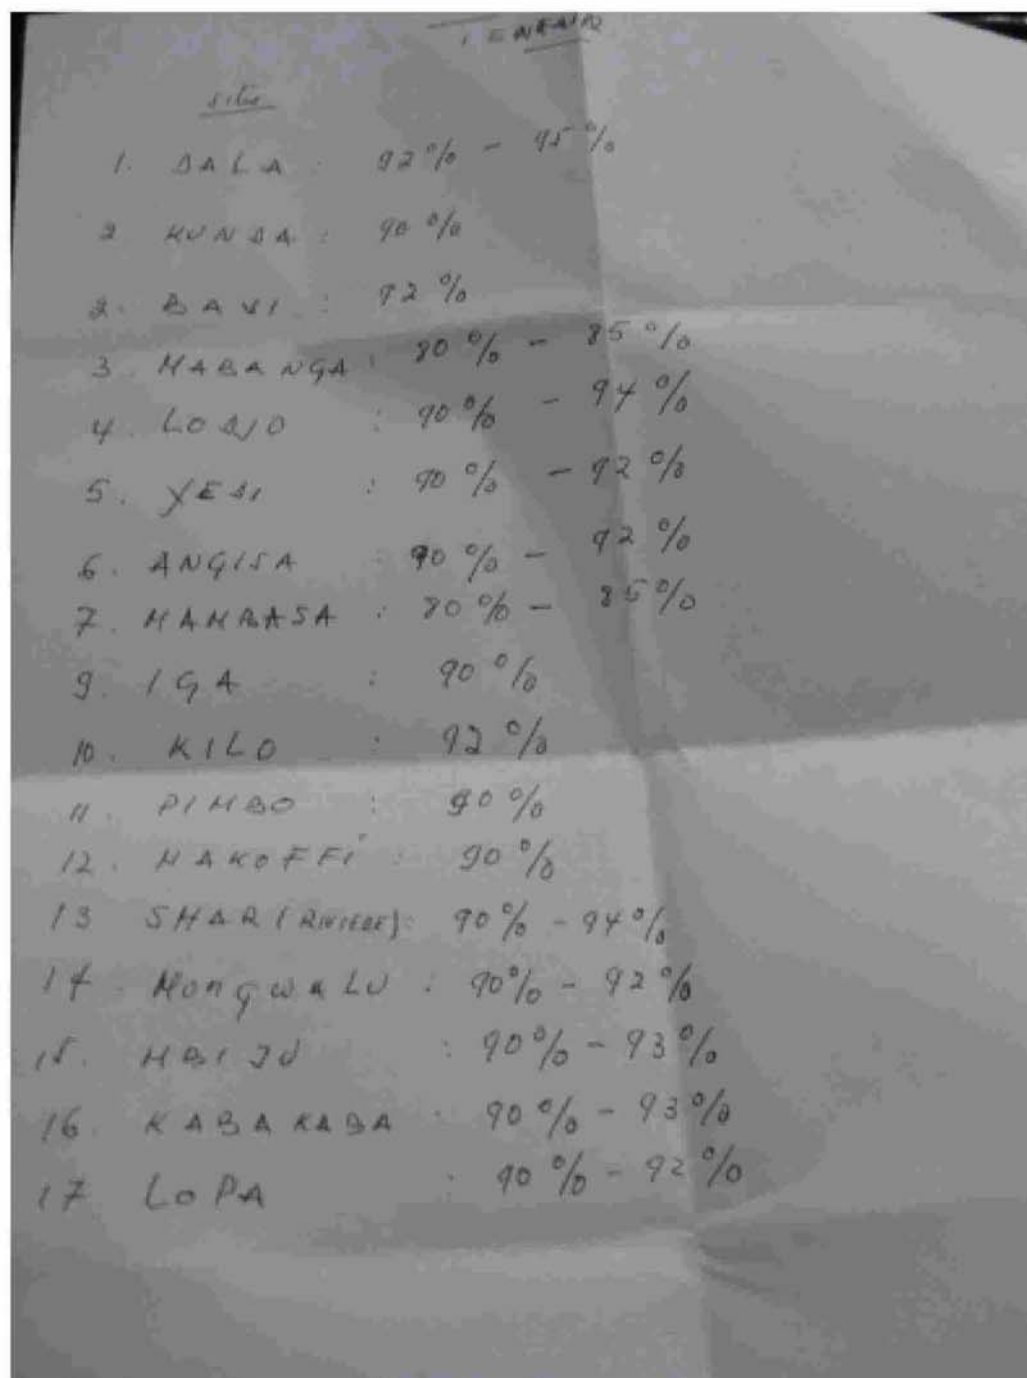 TENEUR
site
1. DALA : 92% - 95%
2. KUNDA : 90%
2. BAVI : 92%
3. MABANGA : 80% - 85%
4. LODJO : 90% - 94%
5. YEDI : 90% - 92%
6. ANGISA : 90% - 92%
7. MAMBASA : 80% - 85%
9. IGA : 90%
10. KILO : 92%
11. PIMBO : 90%
12. MAKOFFI : 90%
13 SHARI (RIVIERE) : 90% - 94%
14. MongwaLU : 90% - 92%
15. MBIJU : 90% - 93%
16. KABAKABA : 90% - 93%
17 LoPA : 90% - 92%